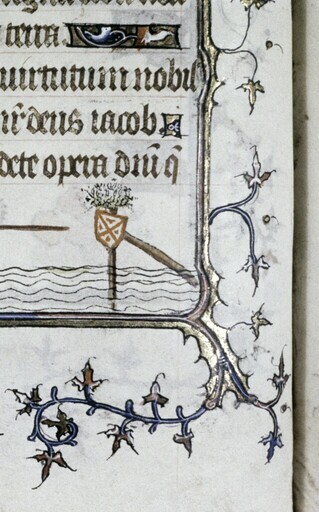 terra
uirtutum nobiſ
nr̄ deus iacob
dete opera dn̄i q̄